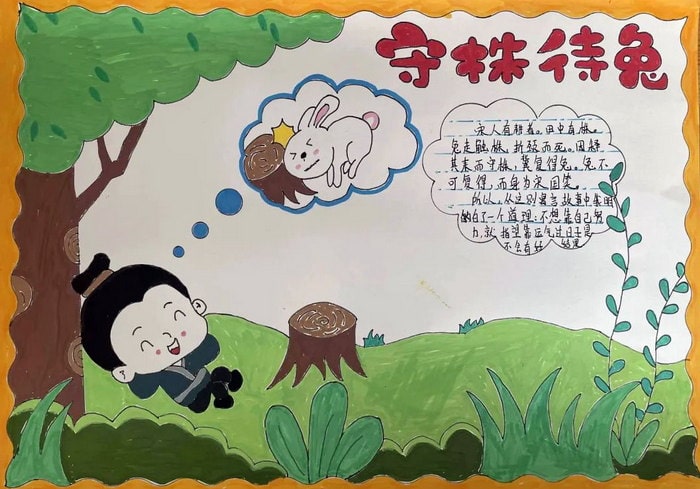 守株待兔
宋人有耕者。田中有株。
兔走触株,折颈而死。因释
其耒而守株,冀复得兔。兔不
可复得,而身为宋国笑。
所以,从这则寓言故事中我明
白了一个道理:不想靠自己努
力,就指望靠运气过日子是
不会有好 结果